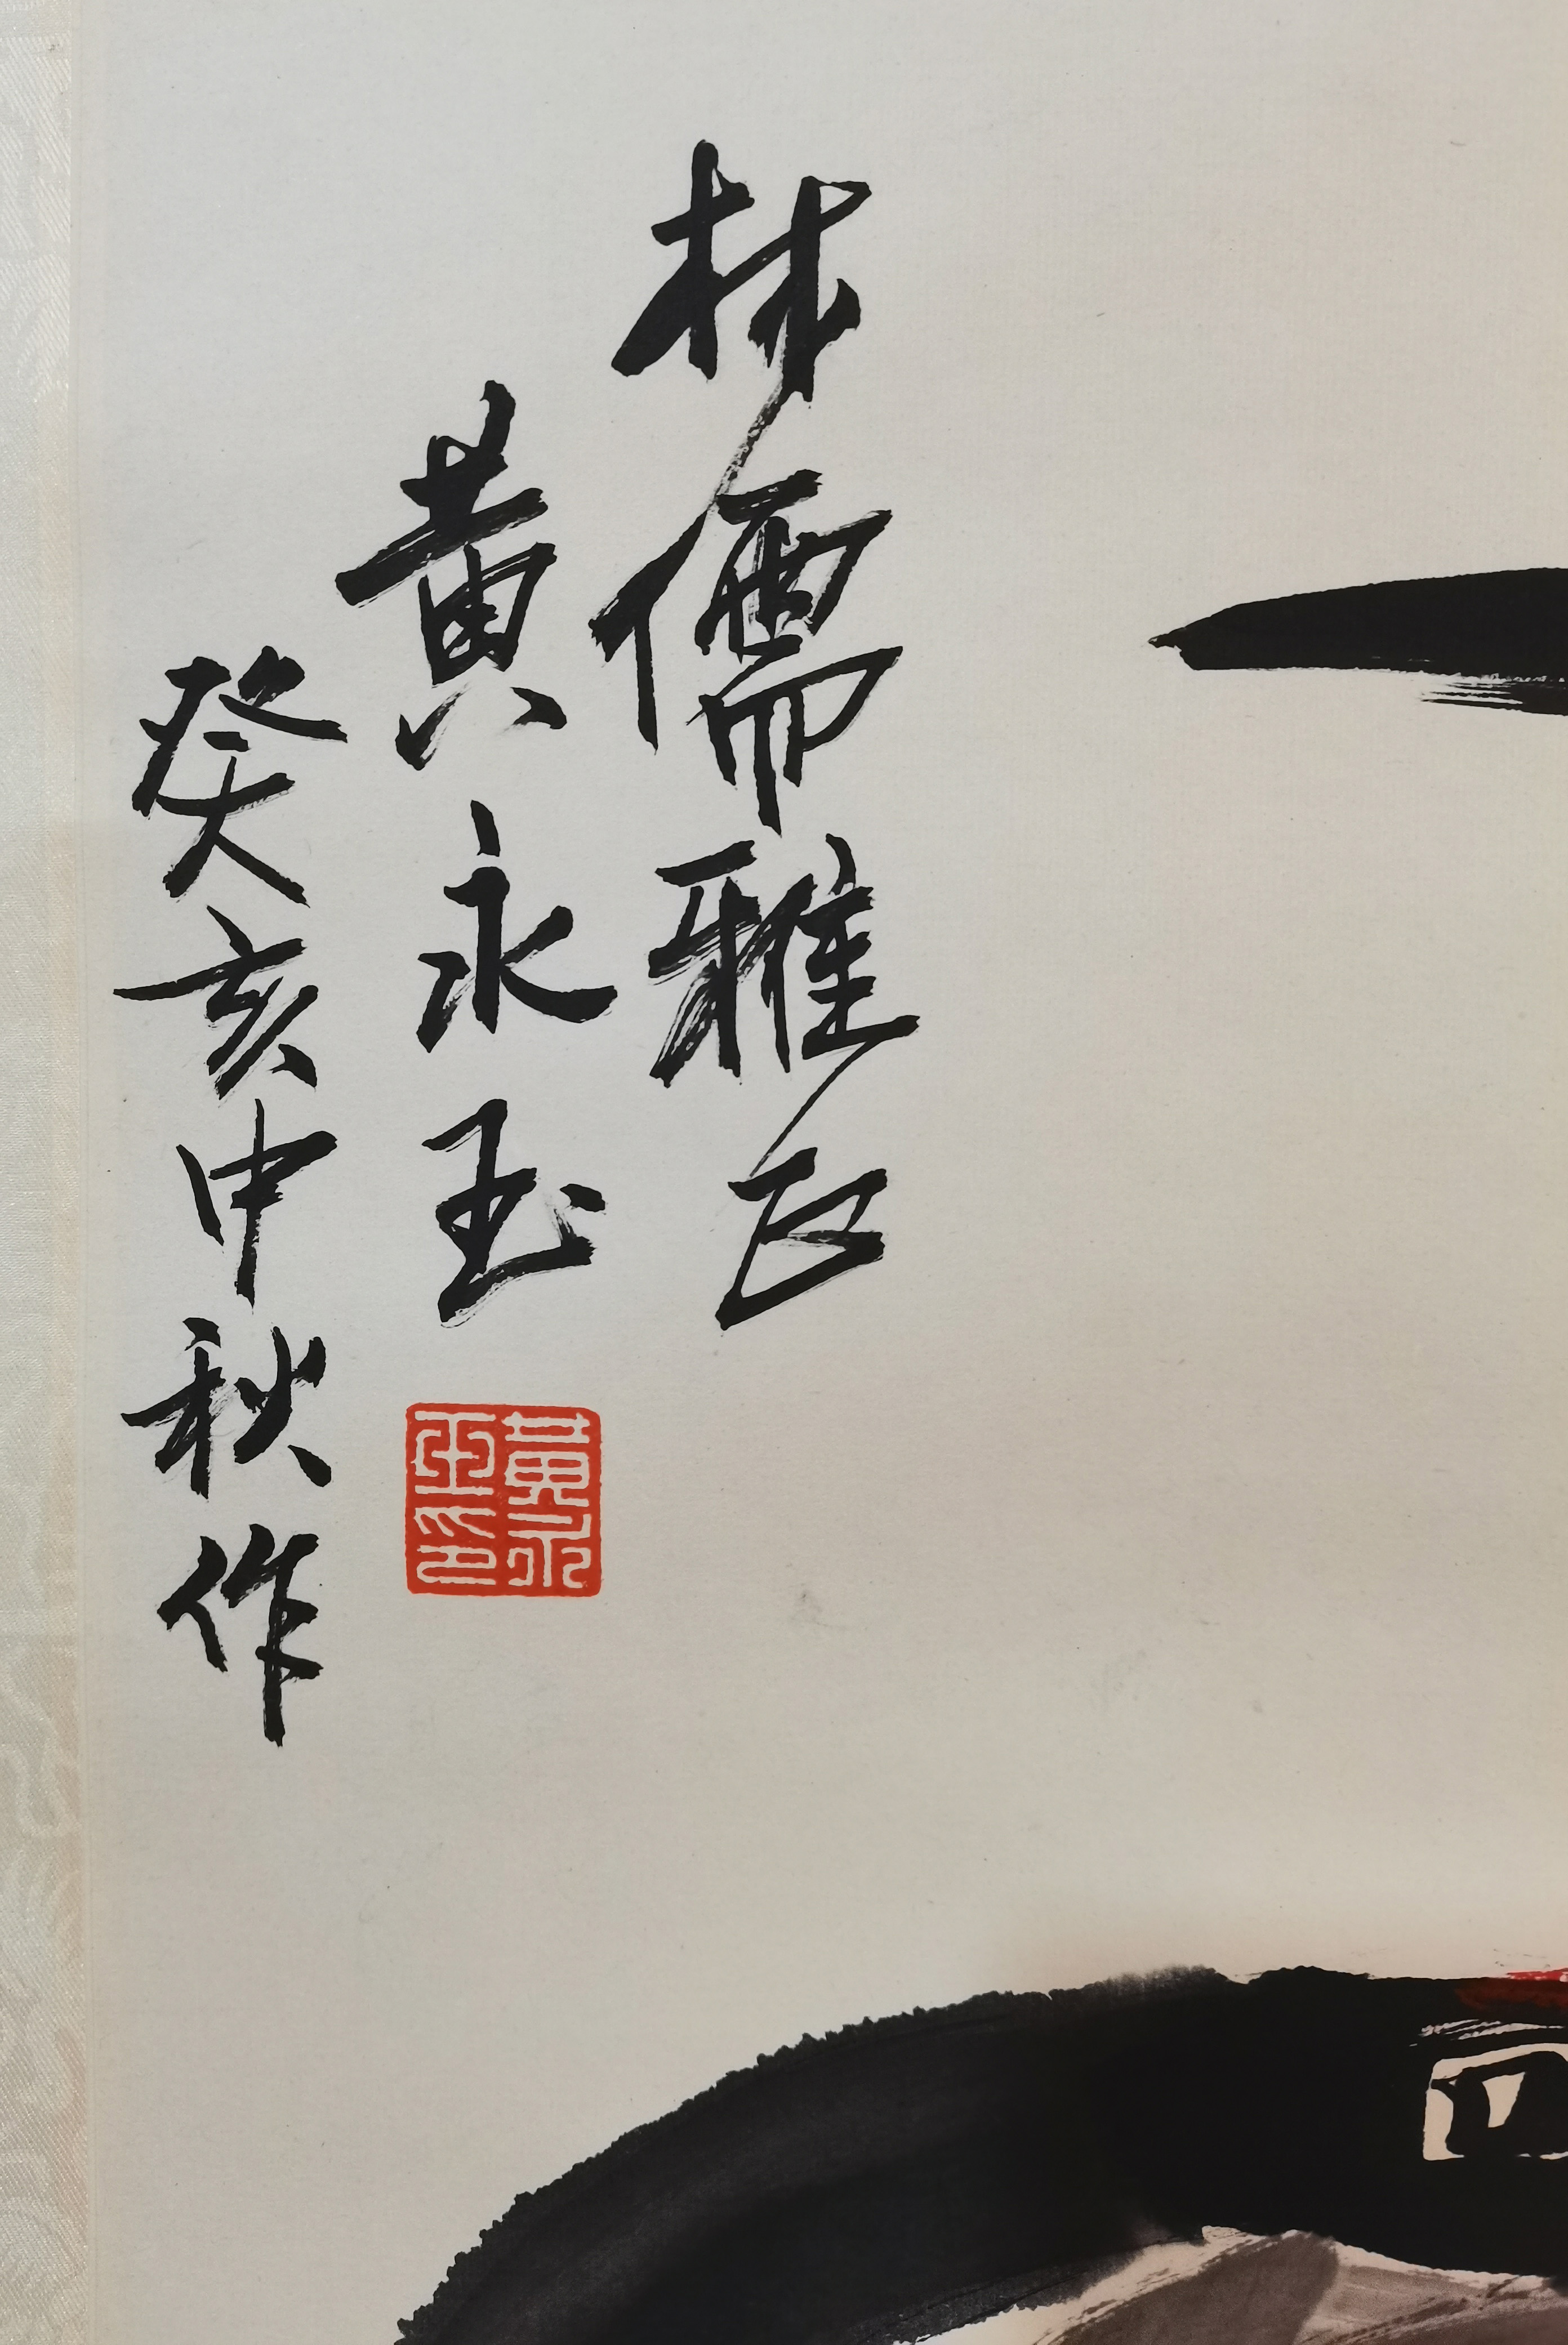 林儒雅正
黄永玉
癸亥中秋作
黄永玉印